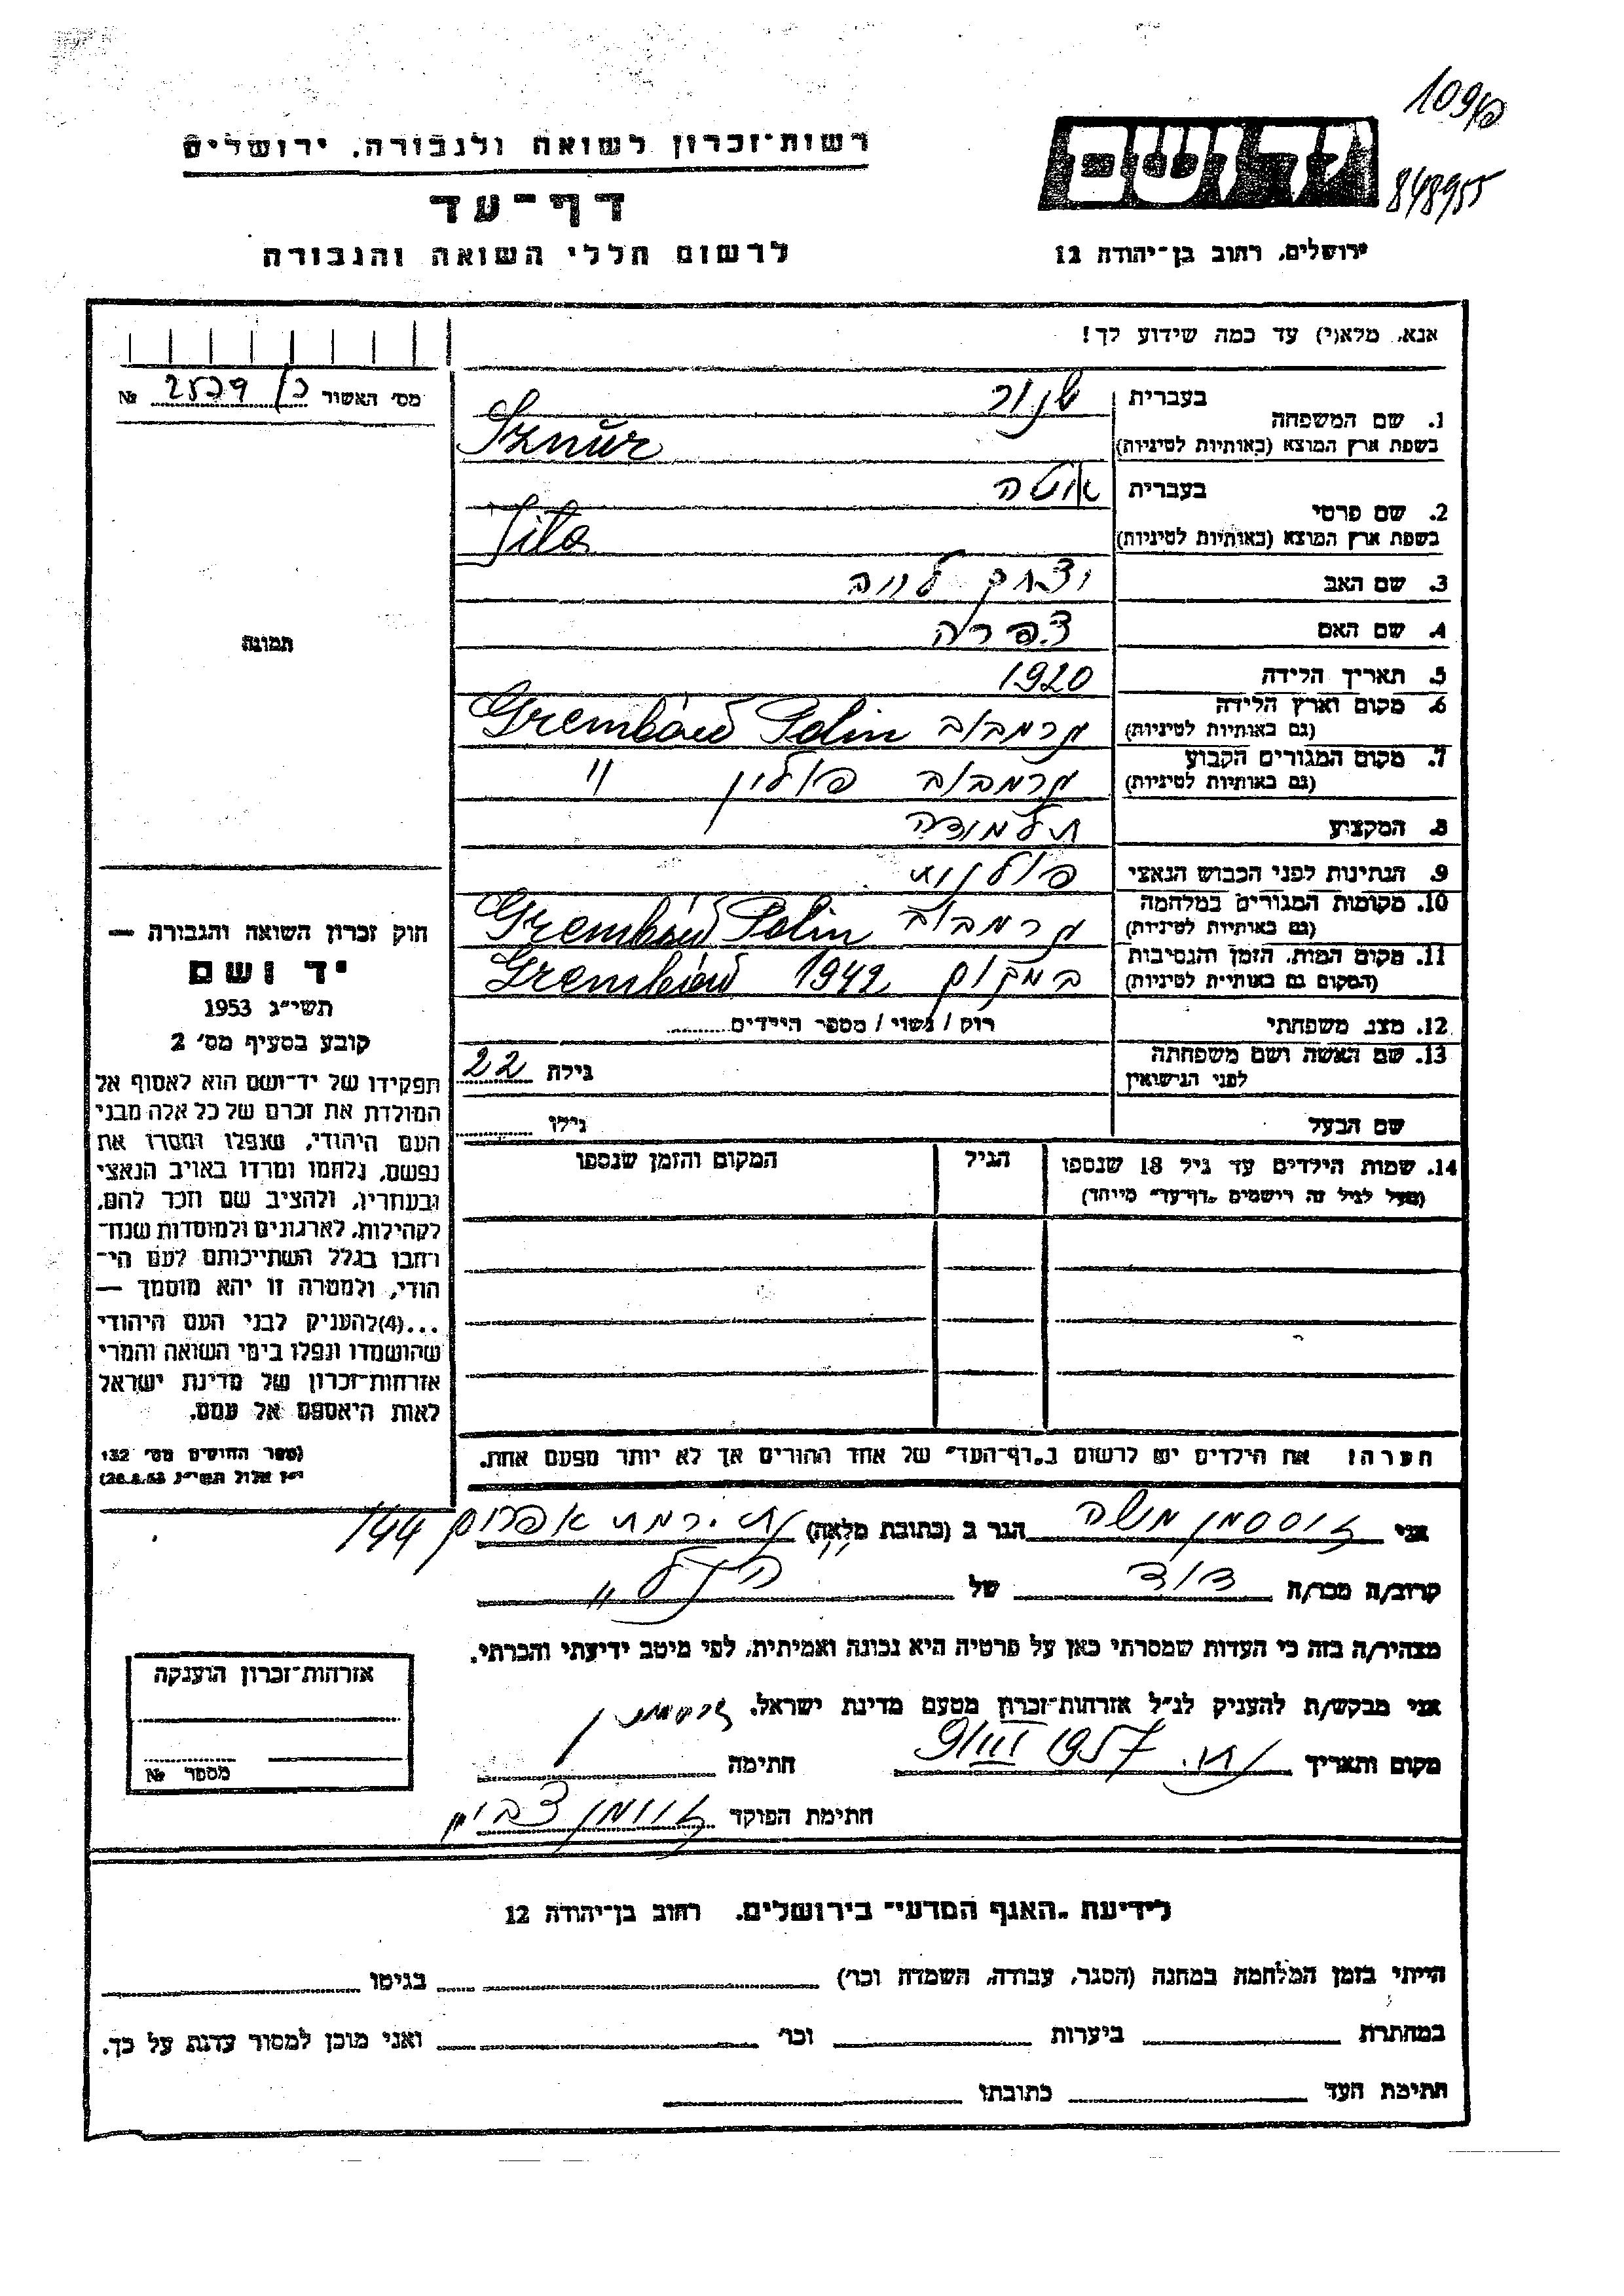 109/כ
848955
יד ושם
ירושלים, רחוב בן־יהודה 12
רשות־זכרון לשואה ולגבורה, ירושלים
דף־עד
לרשום חללי השואה והגבורה
אנא, מלא(י) עד כמה שידוע לך!
מס׳ האשור כ/ 2579 №
תמונה
1. שם המשפחה בעברית שנור
בשפת ארץ המוצא (באותיות לטיניות) Sznur
2. שם פרטי בעברית איטה
בשפת ארץ המוצא (באותיות לטיניות) Jita
3. שם האב יצחק לייב
4. שם האם צפרה
5. תאריך הלידה 1920
6. מקום וארץ הלידה גרמבוב Grembów Polin
(גם באותיות לטיניות)
7. מקום המגורים הקבוע גרמבוב פולין "
(גם באותיות לטיניות)
8. המקציע תלמידה
9. הנתינות לפני הכבוש הנאצי פולנית
10. מקומות המגורים במלחמה גרמבוב Grembów Polin
(גם באותיות לטיניות)
11. מקום המות, הזמן והנסיבות במקום 1942 Grembów
(המקום גם באותיות לטיניות)
12. מצב משפחתי רוק / נשוי / מספר הילדים
13. שם האשה ושם משפחתה גילה 22
לפני הנישואין
שם הבעל גילו
14. שמות הילדים עד גיל 18 שנספו הגיל המקום והזמן שנספו
(מעל לגיל זה רישמים „דף־עד" מייחד)
הערה! את הילדים יש לרשום ב„דף־העד" של אחד ההורים אך לא יותר מפעם אחת.
חוק זכרון השואה והגבורה —
יד ושם
תשי״ג 1953
קובע בסעיף מס׳ 2
תפקידו של יד־ושם הוא לאסוף אל
המולדת את זכרם של כל אלה מבני
העם היהודי, שנפלו ומסרו את
נפשם, נלחמו ומרדו באויב הנאצי
ובעוזריו, ולהציב שם וזכר להם,
לקהילות, לארגונים ולמוסדות שנח־
רבו בגלל השתייכותם לעם הי־
הודי, ולמטרה זו יהא מוסמך —
...(4)להעניק לבני העם היהודי
שהושמדו ונפלו בימי השואה והמרי
אזרחות־זכרון של מדינת ישראל
לאות היאספם אל עמם.
(ספר החוקים מס׳ 132
י״ז אלול תשי״ג 28.8.53)
אני זוסמן משה הגר ב (כתובת מלאה) ת. רמת אפרים 144
קרוב/ה מכר/ה דוד של הנ״ל
מצהיר/ה בזה כי העדות שמסרתי כאן על פרטיה היא נכונה ואמיתית, לפי מיטב ידיעתי והכרתי.
אני מבקש/ת להעניק לנ״ל אזרחות־זכרון מטעם מדינת ישראל.
מקום ותאריך 9/III 1957 חתימה זוסמן
חתימת הפוקד
אזרחות־זכרון הוענקה
מספר №
לידיעת „האגף המדעי" בירושלים, רחוב בן־יהודה 12
הייתי בזמן המלחמה במחנה (הסגר, עבודה, השמדה וכו׳) בגיטו
במחתרת ביערות וכו׳ ואני מוכן למסור עדות על כך.
חתימת העד כתובתו